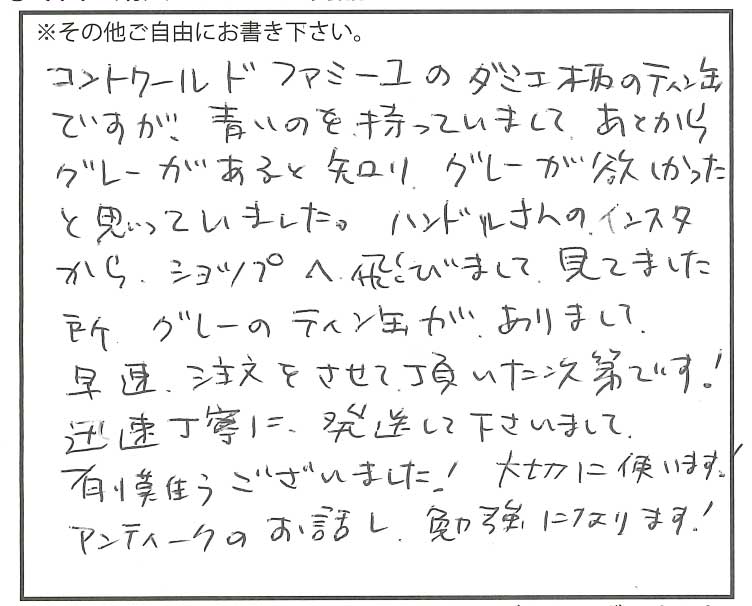 ※その他ご自由にお書き下さい。
コントワールド ファミーユのダミエ柄のティン缶
ですが、青いのを持っていまして、あとから
グレーがあると知り、グレーが欲しかった
と思っていました。ハンドルさんの、インスタ
から、ショップへ飛びまして、見てました
所、グレーのティン缶が、ありまして、
早速、注文をさせて頂いた次第です!
迅速丁寧に、発送して下さいまして、
有り難うございました! 大切に使います!
アンティークのお話し、勉強になります!